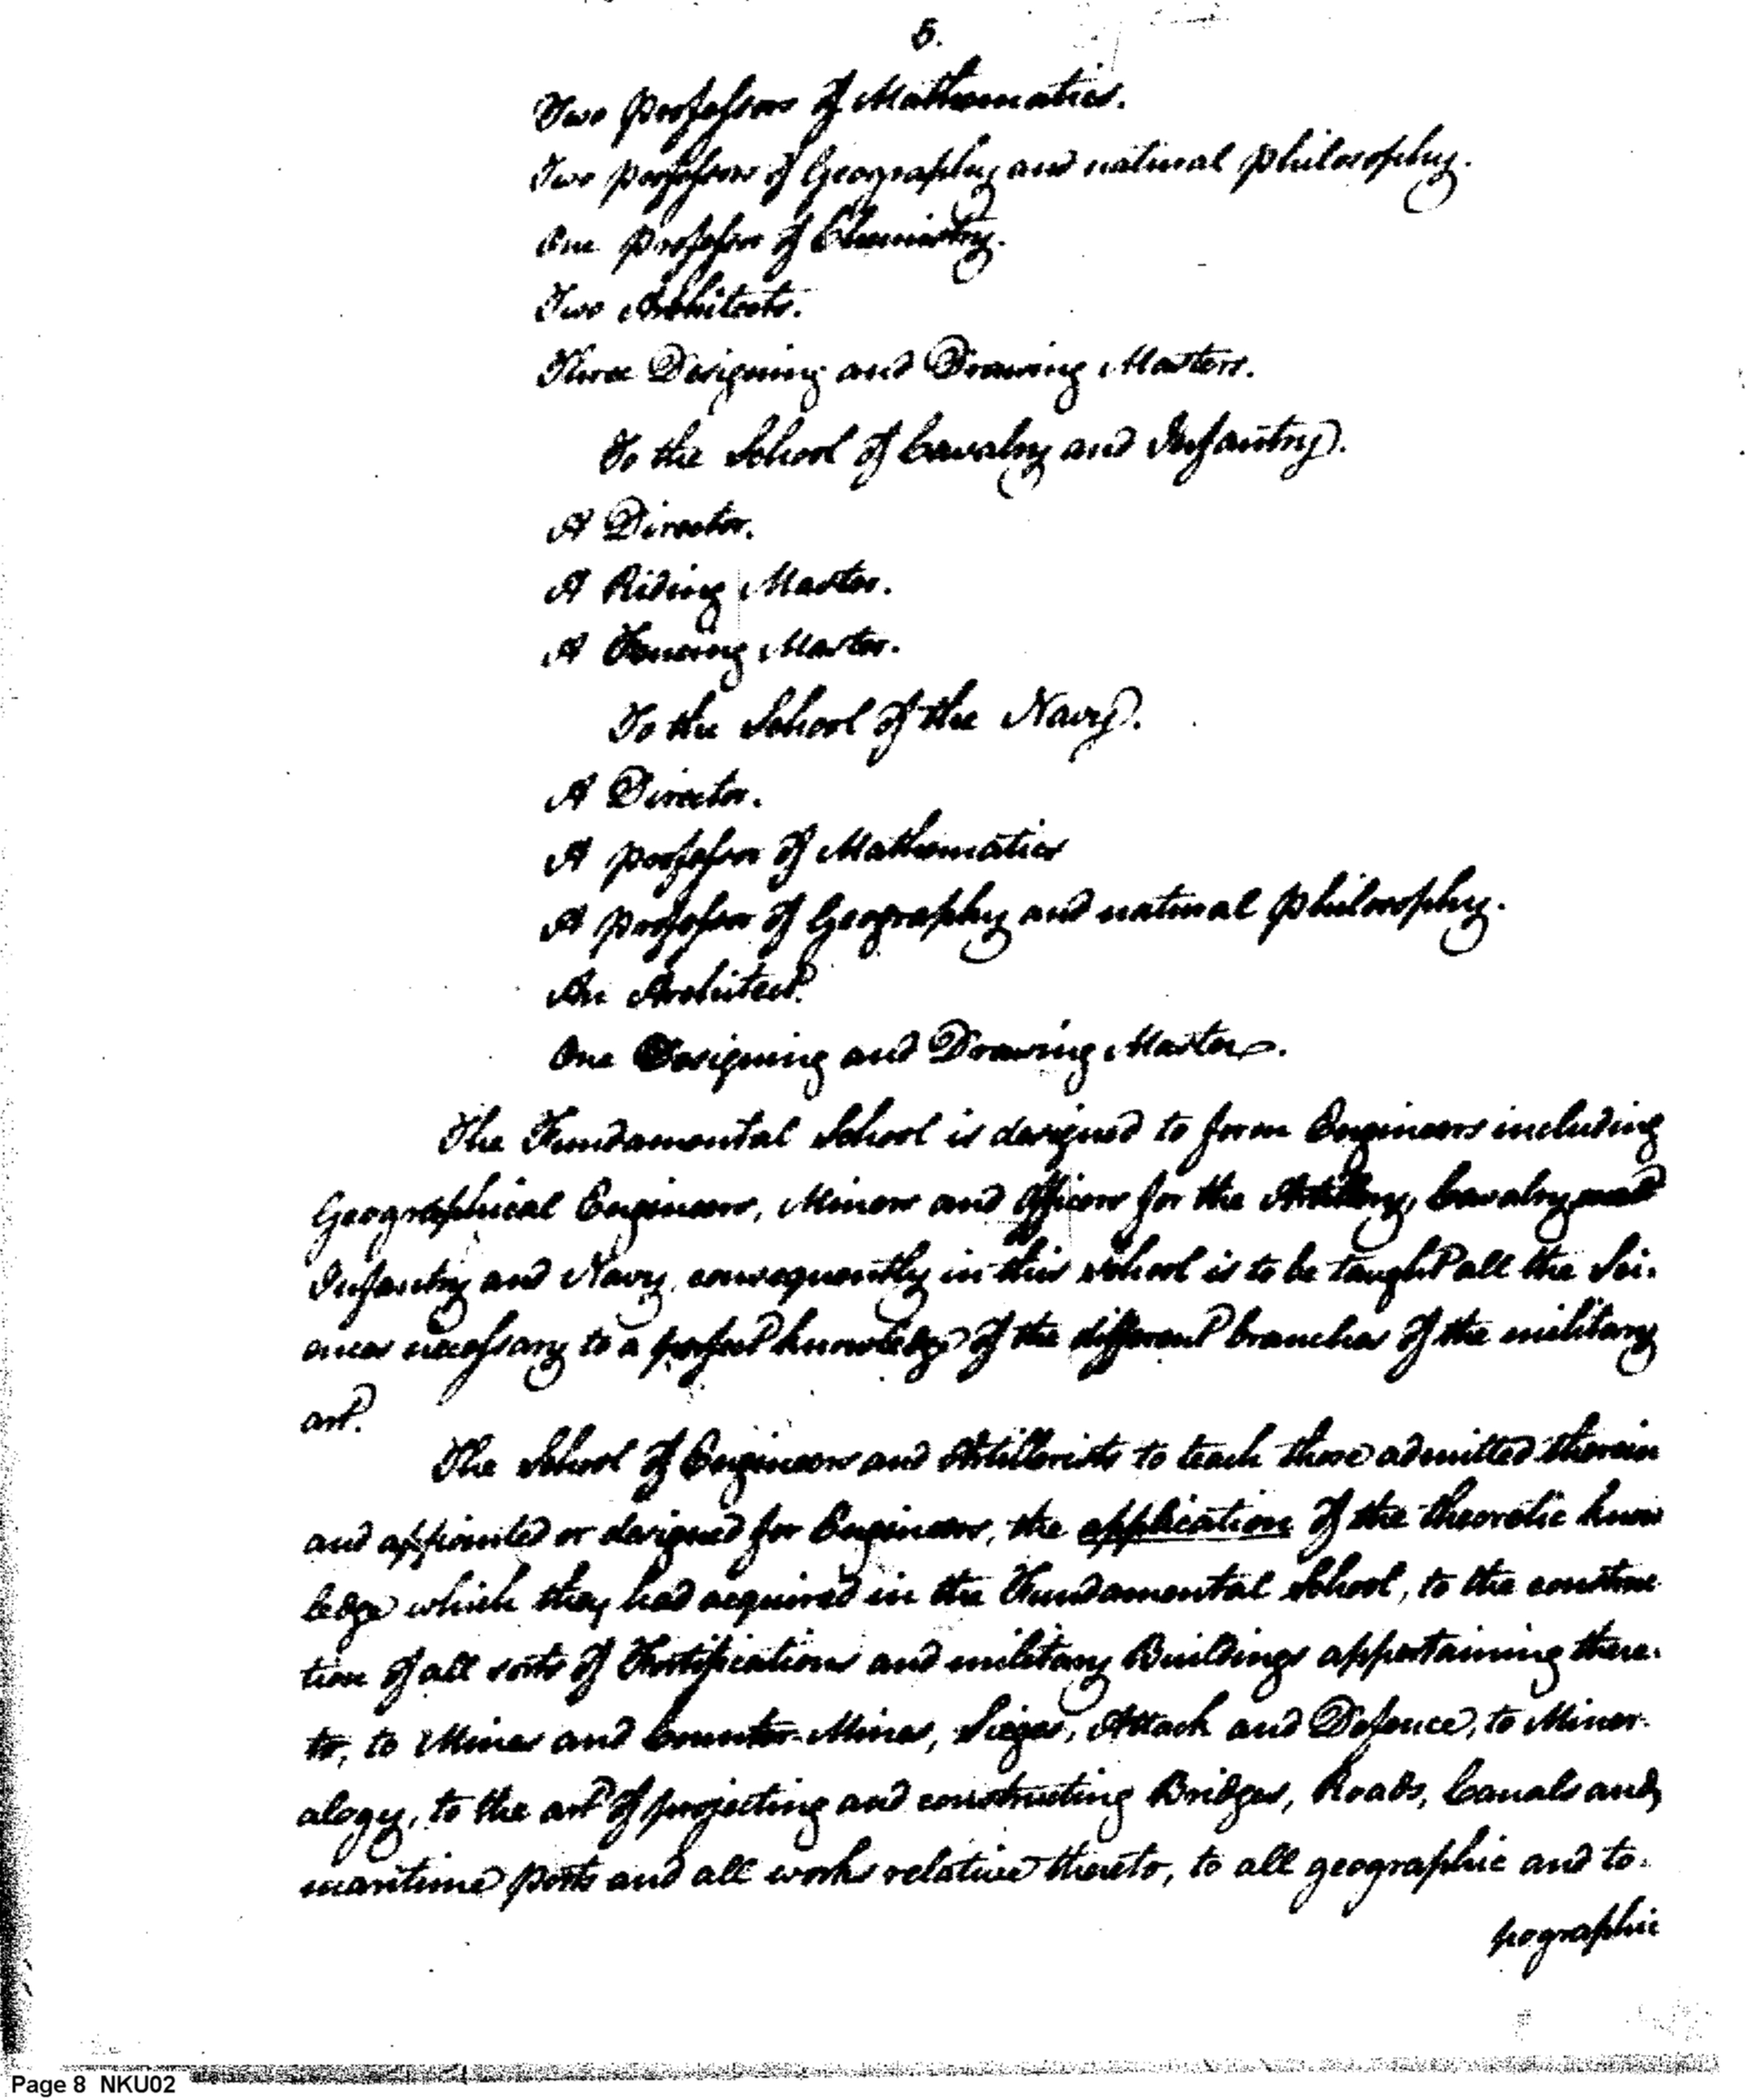 5.
Two professors of Mathematics.
Two professors of Geography and natural philosophy.
One professor of Chemistry.
Two Architects.
Three Designing and Drawing Masters.
To the School of Cavalry and Infantry.
A Director.
A Riding Master.
A Fencing Master.
To the School of the Navy.
A Director.
A professor of Mathematics
A professor of Geography and natural philosophy.
An Architect.
One Designing and Drawing Master.
The Fundamental School is designed to form Engineers including
Geographical Engineers, Miners and officers for the Artillery, Cavalry and
Infantry and Navy, consequently in this school is to be taught all the Sci-
ences necessary to a perfect knowledge of the different branches of the military
art.
The School of Engineers and Artillerists to teach those admitted therein
and appointed or designed for Engineers, the application of the theoretic know
ledge which they had acquired in the Fundamental School, to the construc
tion of all sorts of Fortifications and military Buildings appertaining there-
to, to Mines and Counter-Mines, Sieges, Attack and Defence, to Miner-
alogy, to the art of projecting and constructing Bridges, Roads, Canals and
maritime ports and all works relative thereto, to all geographic and to-
pographic
Page 8 NKU02